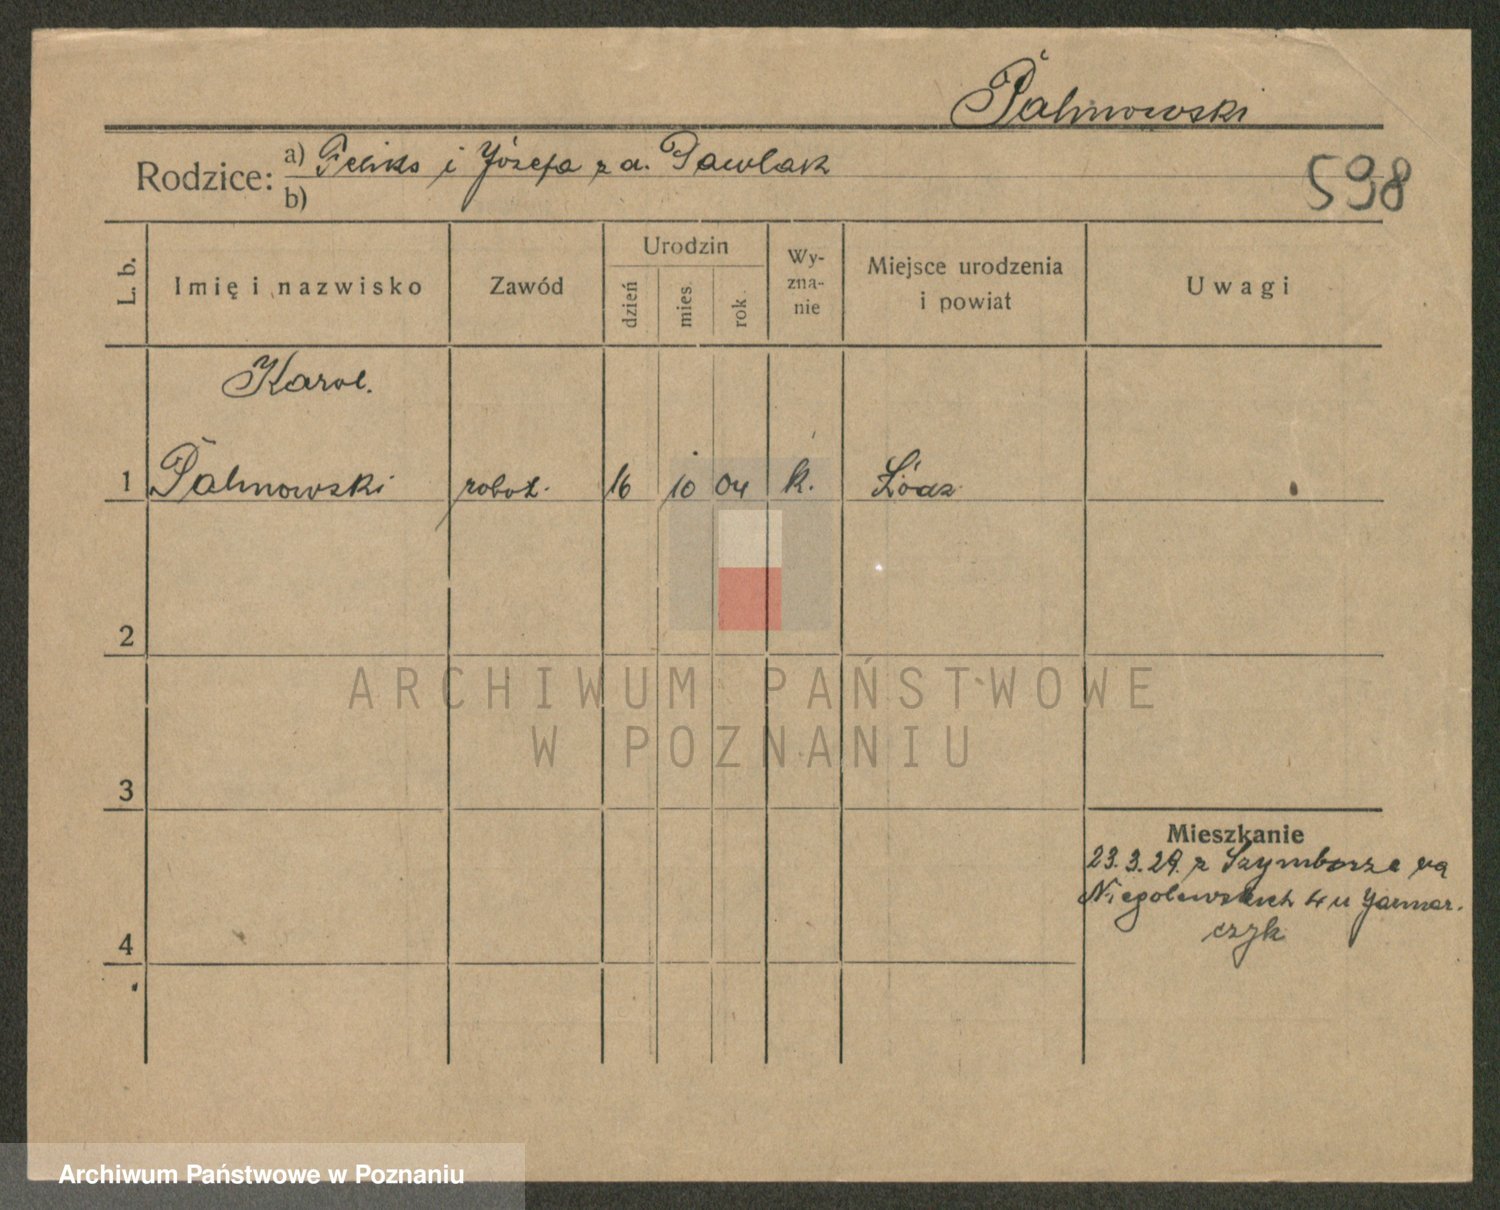 Palmowski
Rodzice: a) Feliks i Józefa z d. Pawlak
b)
598
L. b.
Imię i nazwisko
Zawód
Urodzin
dzień
mies.
rok
Wy-
zna-
nie
Miejsce urodzenia
i powiat
Uwagi
Karol.
1 Palmowski robot. 16 10 04 k. Łódz
2
3
4
Mieszkanie
23.3.29. z Szymborze na
Niegolewskich 4 u Jarmar-
czyk
ARCHIWUM PAŃSTWOWE
W POZNANIU
Archiwum Państwowe w Poznaniu